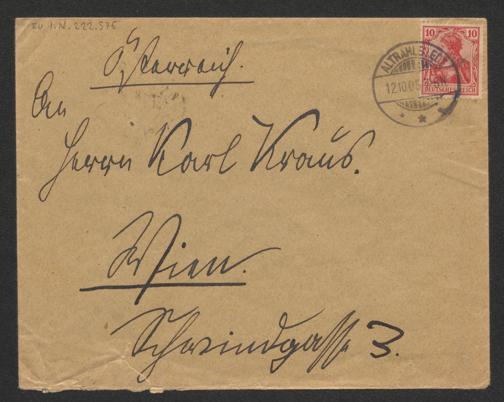 ZU I.N. 222.576
Österreich.
10 10
DEUTSCHES REICH
ALTRAHLSTEDT
12.10.05
An
Herrn Karl Kraus.
Wien.
Schwindgasse 3.